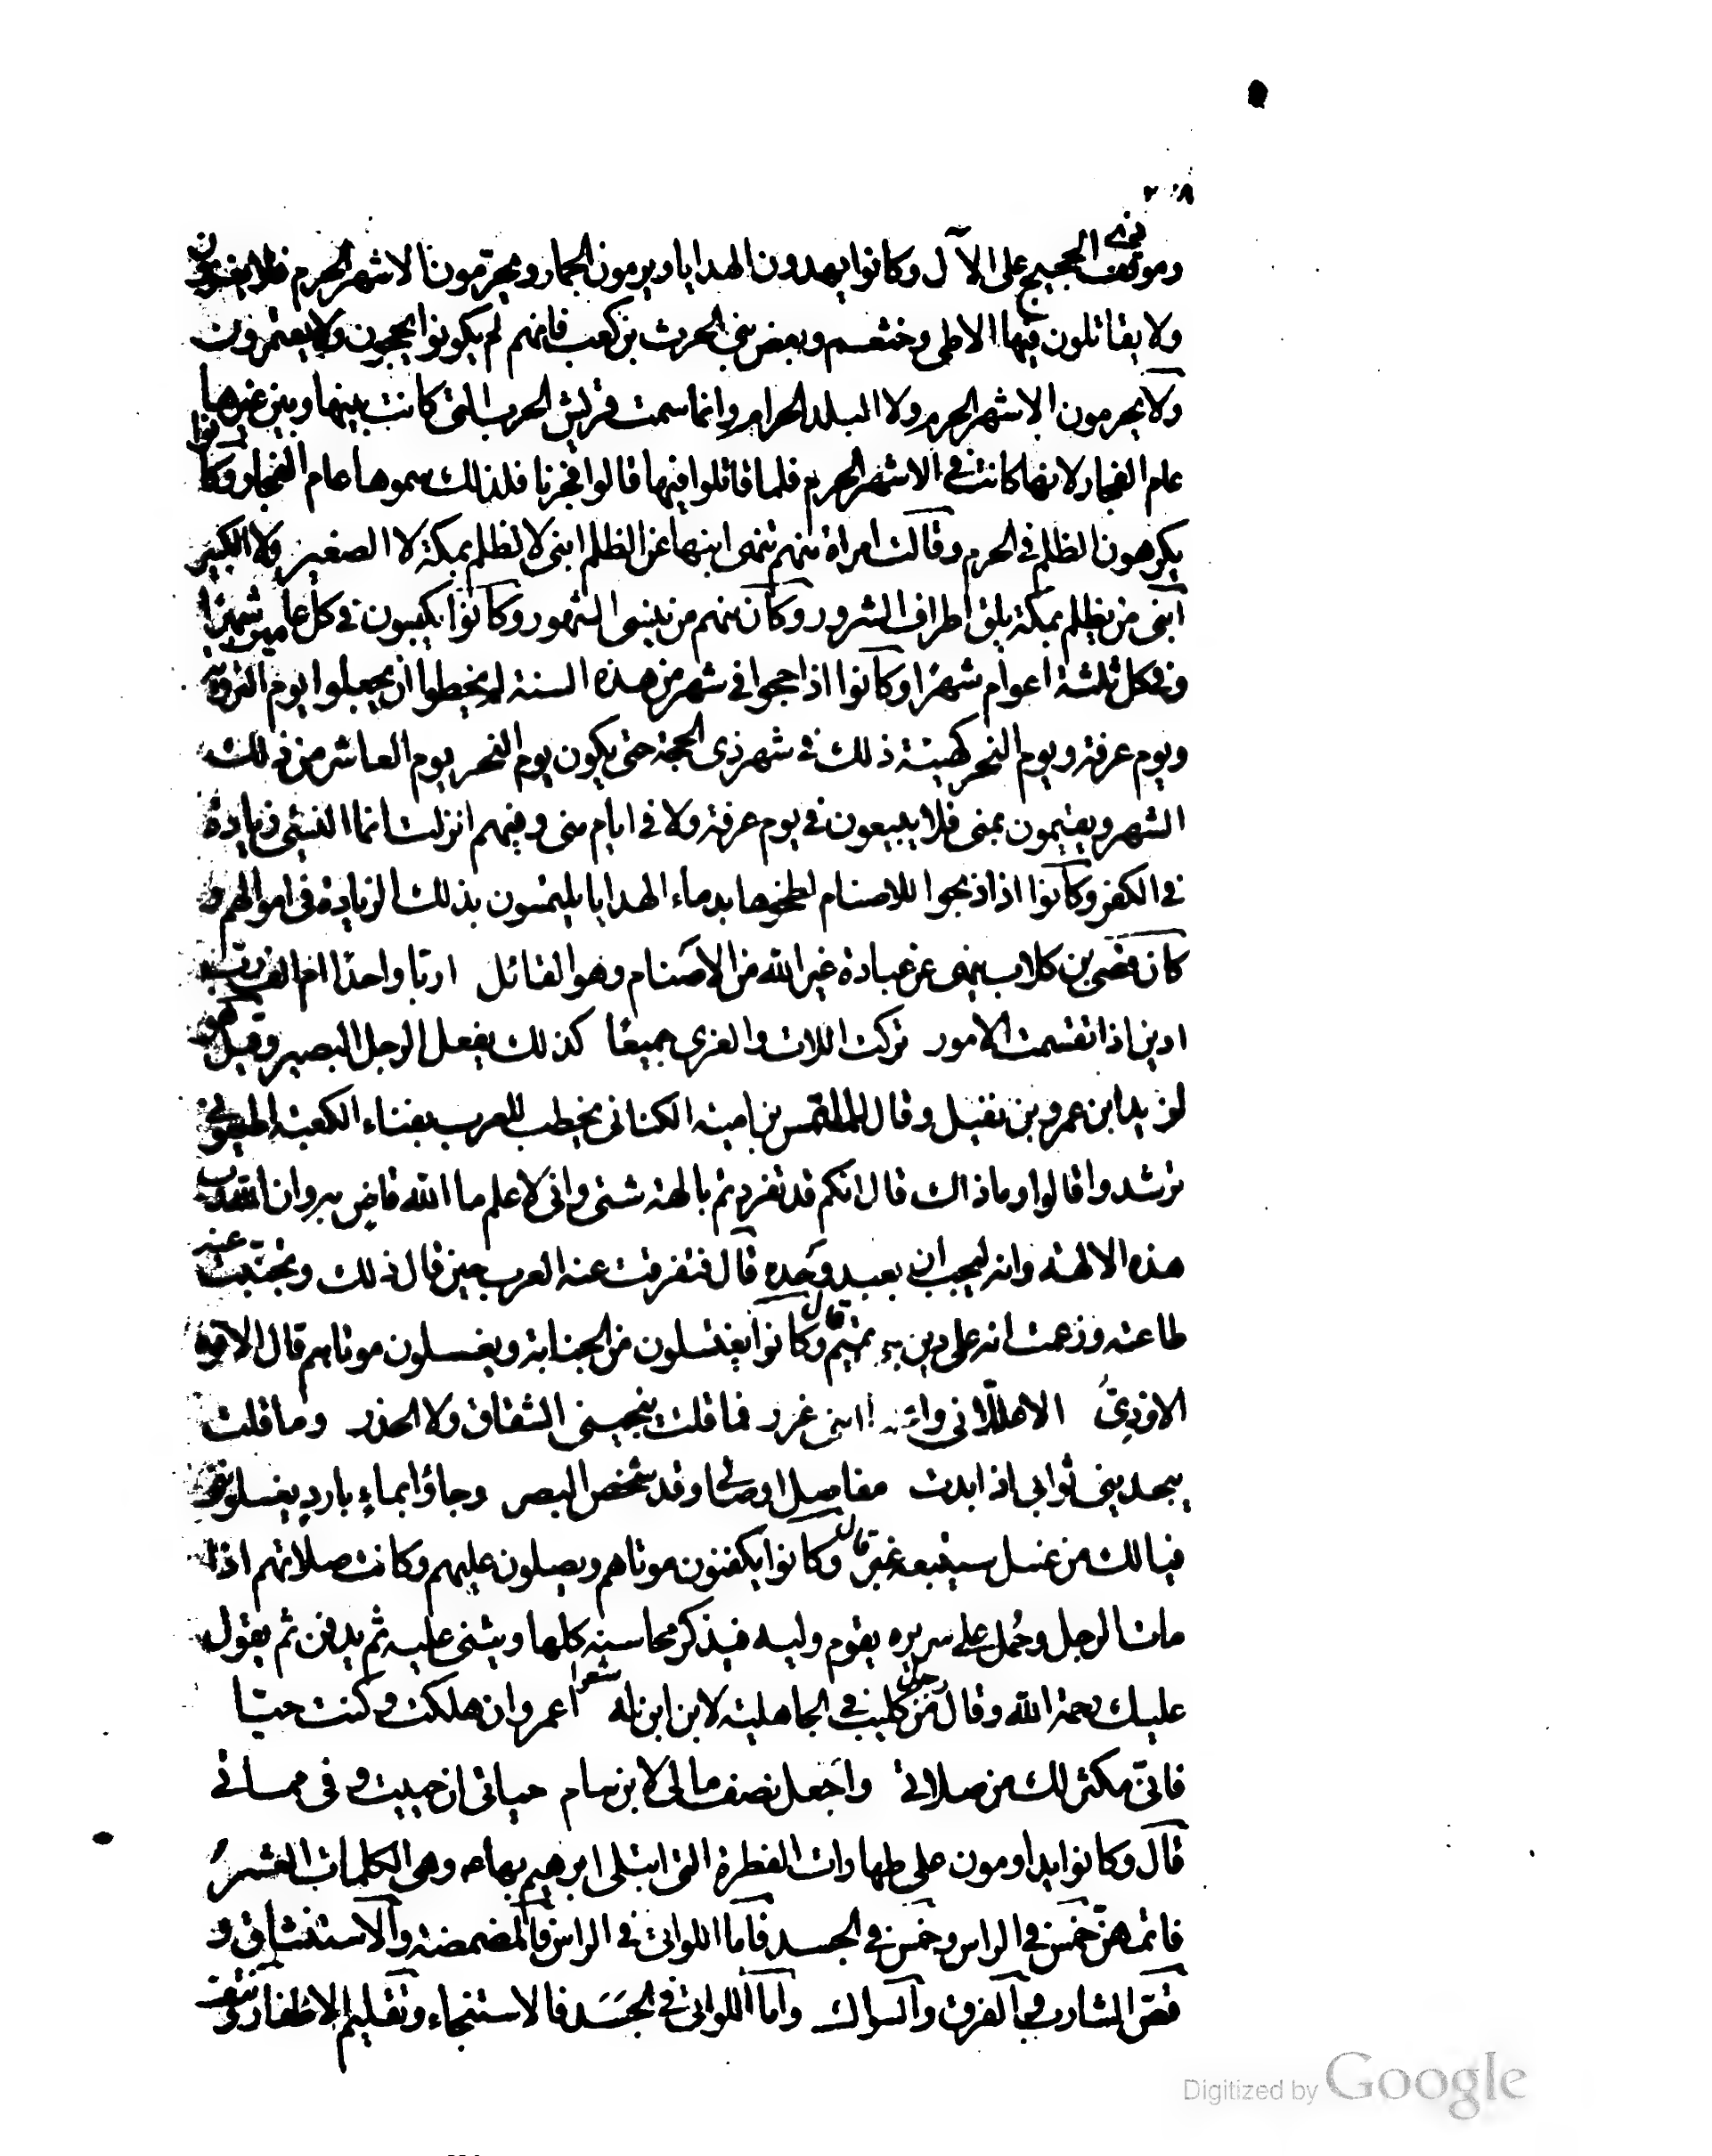 ٢٠٨
وموقف الحجيج على الآل وكانوا يهدون الهدايا ويرمون الجمار ويحرّمون الاشهر الحرم فلا يغزون
ولا يقاتلون فيها الا طي وخثعم وبعض بني الحرث بن كعب فانهم لم يكونوا يحجون ولا يعتمرون
ولا يحرمون الاشهر الحرم ولا البلد الحرام وانما سمت قريش الحرب التي كانت بينها وبين غيرها
عام الفجار لانها كانت في الاشهر الحرم فلما قاتلوا فيها قالوا فجرنا فلذلك سموها عام الفجار وكانوا
يكرهون الظلم في الحرم وقالت امراة منهم تنهى ابنها عن الظلم ابني لا تظلم بمكة لا الصغير ولا الكبير
ابني من يظلم بمكة يلق اطراف الشرور وكان منهم من ينسى الشهور وكانوا يكبسون في كل عامين شهرًا
وفي كل ثلثة اعوام شهرًا وكانوا اذا حجوا في شهر من هذه السنة لم يخطوا ان يجعلوا يوم التروية
ويوم عرفة ويوم النحر كهيئة ذلك في شهر ذي الحجة حتى يكون يوم النحر يوم العاشر من ذلك
الشهر ويقيمون بمنى فلا يبيعون في يوم عرفة ولا في ايام منى وفيهم انزلت انما النسئ زيادة
في الكفر وكانوا اذا ذبحوا للاصنام لطخوها بدماء الهدايا يلتمسون بذلك الزيادة في اموالهم و
كان قصي بن كلاب ينهى عن عبادة غير الله من الاصنام وهو القائل اربّا واحدًا ام الف رب
ادين اذا تقسمت الامور تركت اللات والعزى جميعًا كذلك يفعل الرجل البصير وقيل هو
لزيد ابن عمرو بن نفيل وقال الملتمس بن امية الكناني يخطب للعرب بفناء الكعبة اطيعوني
ترشدوا قالوا وما ذاك قال انكم قد تفردتم بالهة شتى واني لاعلم ما الله قاض به وان الله رب
هذه الالهة وانه ليحب ان يعبد وحده قال فتفرقت عنه العرب حين قال ذلك وتجنبت عنه
طاعته وزعمت انه على دين بني تميم قال وكانوا يغتسلون من الجنابة ويغسلون موتاهم قال الافوه
الاودي الا عللاني واعلما انني غرر فما قلت ينجيني الشقاق ولا الحذر وما قلت
يجديني ثوابي اذا بدت مفاصل اوصالي وقد شخص البصر وجاؤا بماء بارد يغسلونني
فيالك من غسل سيتبعه غير قال وكانوا يكفنون موتاهم ويصلون عليهم وكانت صلاتهم اذا
مات الرجل وحمل على سريره يقوم وليه فيذكر محاسنه كلها ويثني عليه ثم يدفن ثم يقول
عليك رحمة الله وقال رجل من كلب في الجاهلية لابن ابن له شعرا اعمرو ان هلكت وكنت حيّا
فانّي مكثر لك من صلاتي واجعل نصف مالي لابن سام حياتي ان حييت وفي مماتي
قال وكانوا يداومون على طهارات الفطرة التي ابتلى ابرهيم بها وهي الكلمات العشر
فاتمهنّ خمس في الراس وخمس في الجسد فاما اللواتي في الراس فالمضمضة والاستنشاق و
قصّ الشارب والفرق والسواك واما اللواتي في الجسد فالاستنجاء وتقليم الاظفار ونتف
Digitized by Google